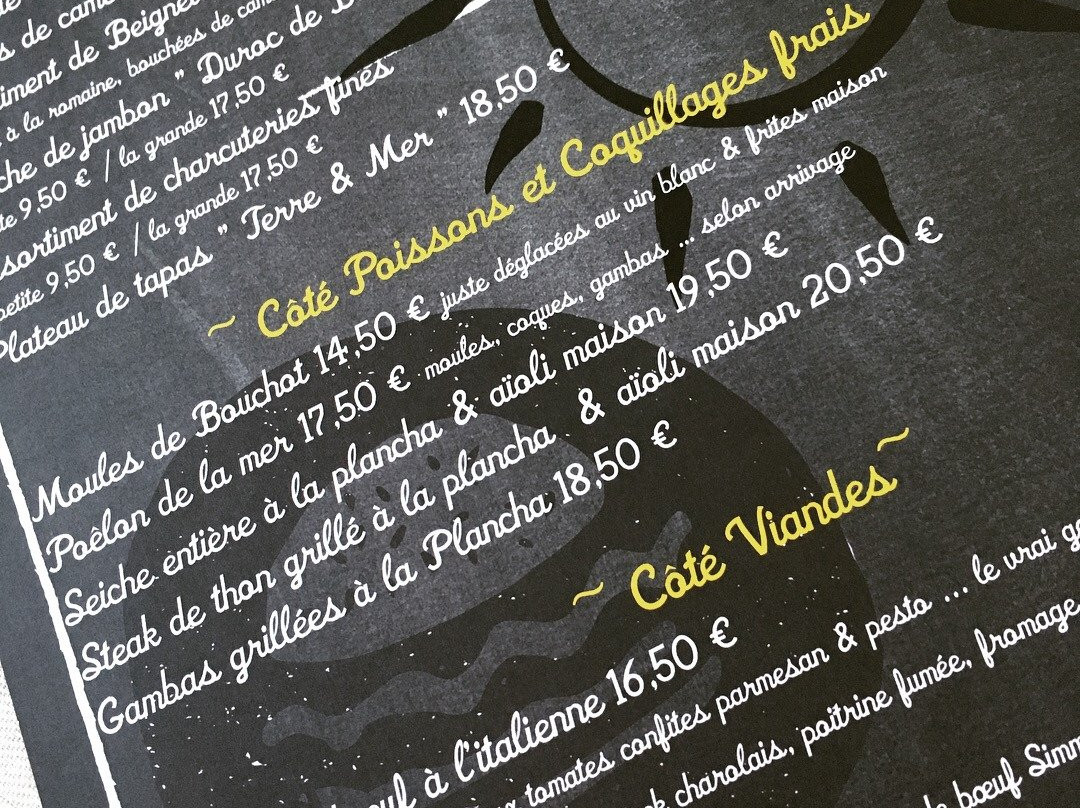 de
s de cam
iment de Beignet
à la romaine, bouchées de cam
che de jambon " Duroc de B
te 9,50 € / la grande 17,50 €
sortiment de charcuteries fines
petite 9,50 € / la grande 17,50 €
Plateau de tapas " Terre & Mer " 18,50 €
~ Côté Poissons et Coquillages frais
Moules de Bouchot 14,50 € juste déglacées au vin blanc & frites maison
Poêlon de la mer 17,50 € moules, coques, gambas ... selon arrivage
Seiche entière à la plancha & aïoli maison 19,50 €
Steak de thon grillé à la plancha & aïoli maison 20,50 €
Gambas grillées à la Plancha 18,50 €
~ Côté Viandes ~
œuf à l'italienne 16,50 €
tomates confites parmesan & pesto ... le vrai go
charolais, poitrine fumée, fromage
de bœuf Simm